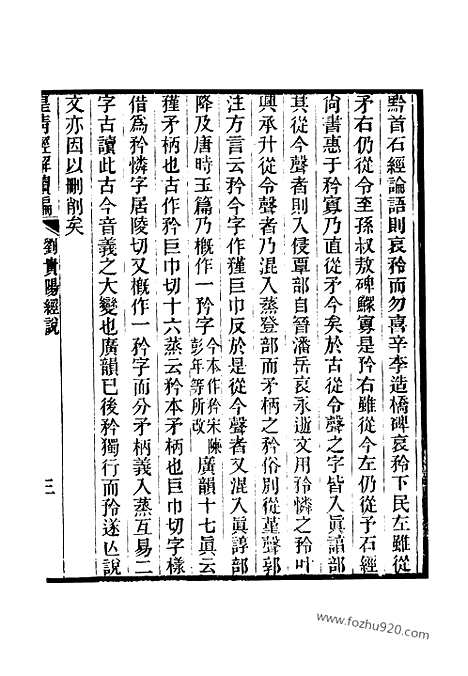 黔首石經論語則哀矜而勿喜辛李造橋碑哀矜下民左雖從
矛右仍從令至孫叔敖碑鰥寡是矜右雖從今左仍從予石經
尚書惠于矜寡乃直從矛今矣於古從令聲之字皆入眞諄部
其從今聲者則入侵覃部自晉潘岳哀永逝文用矜憐之矜叶
興承升從令聲者乃混入蒸登部而矛柄之矜俗別從堇聲郭
注方言云矜今字作㹌巨巾反於是從今聲者又混入眞諄部
降及唐時玉篇乃槪作一矜字今本作矝宋陳
彭年等所改廣韻十七眞云
㹌矛柄也古作矜巨巾切十六蒸云矜本矛柄也巨巾切字樣
借爲矜憐字居陵切又槪作一矜字而分矛柄義入蒸互易二
字古讀此古今音義之大變也廣韻已後矜獨行而矝遂亾說
文亦因以刪削矣
皇淸經解續編 劉貴陽經說 三
www.fozhu920.com